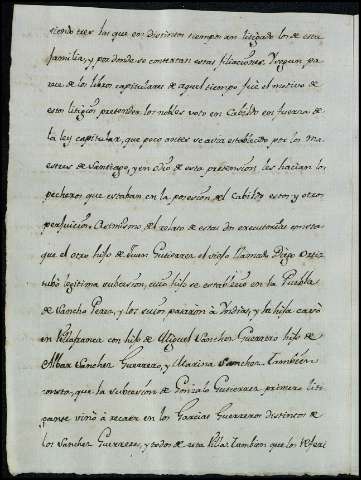 siendo tres las que en distintos tiempos an litigado los de esta
familia, y por donde se contestan estas filiaciones. Y segun pa
rece de los libros capitulares de aquel tiempo fué el motivo de
estos litigios pretender los nobles voto en Cabildo en fuerza de
la ley capitular, que poco antes se avia establecido por los Ma
estres de Santiago, y en odio de esta pretension les hacian los
pecheros que estaban en la posesión del Cabildo estos y otros
perjuicios. Asimismo, del relato de estas dos executorias consta
que el otro hijo de Juan Gutierrez el viejo llamado Diego Ortiz
tubo legitima subcesion, cuio hijo se estableció en la Puebla
de Sancho Perez, y los suios pasaron a Yndias, y la hija casó
en Villafranca con hijo de Miguel Sanchez Guerrero hijo de
Albar Sanchez Guerrero, y Marina Sanchez. Tambien
consta, que la subcesion de Gonzalo Gutierrez primero liti
gante vino à recaer en los Garcias Guerreros distintos de
los Sanchez Guerreros, y todos de esta Villa. Tambien que los